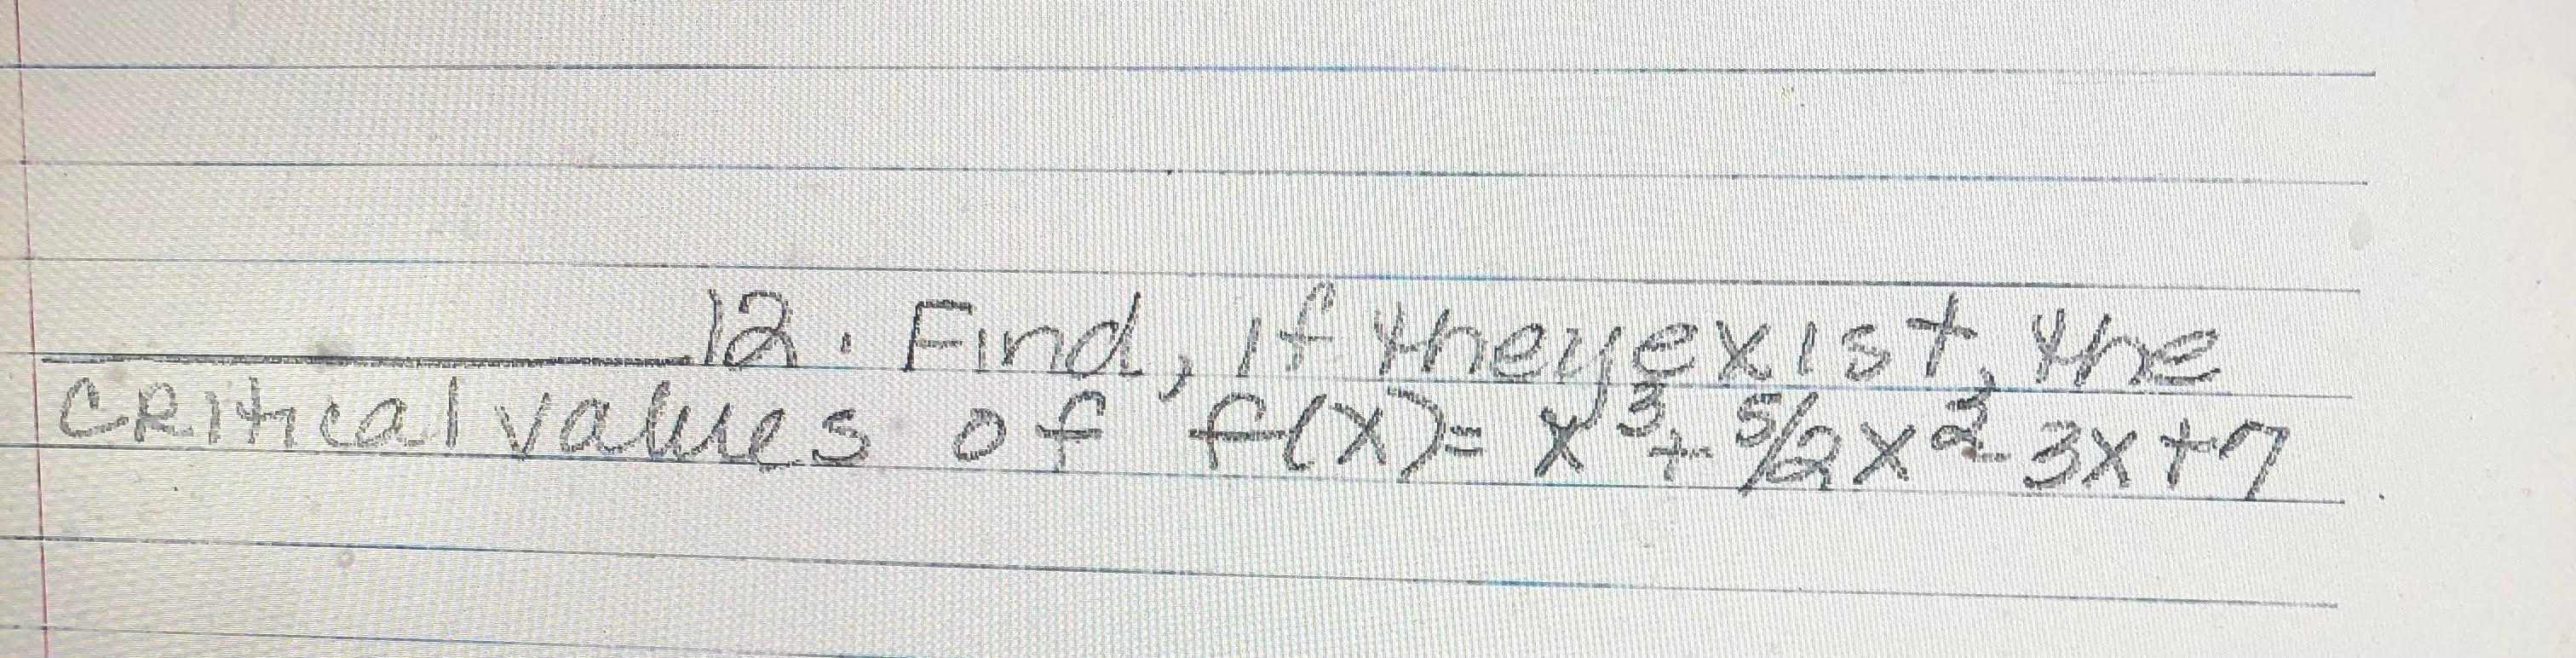 12. Find, if they exist, the
critical values of f(x)= x³+ 5/2x²- 3x+7